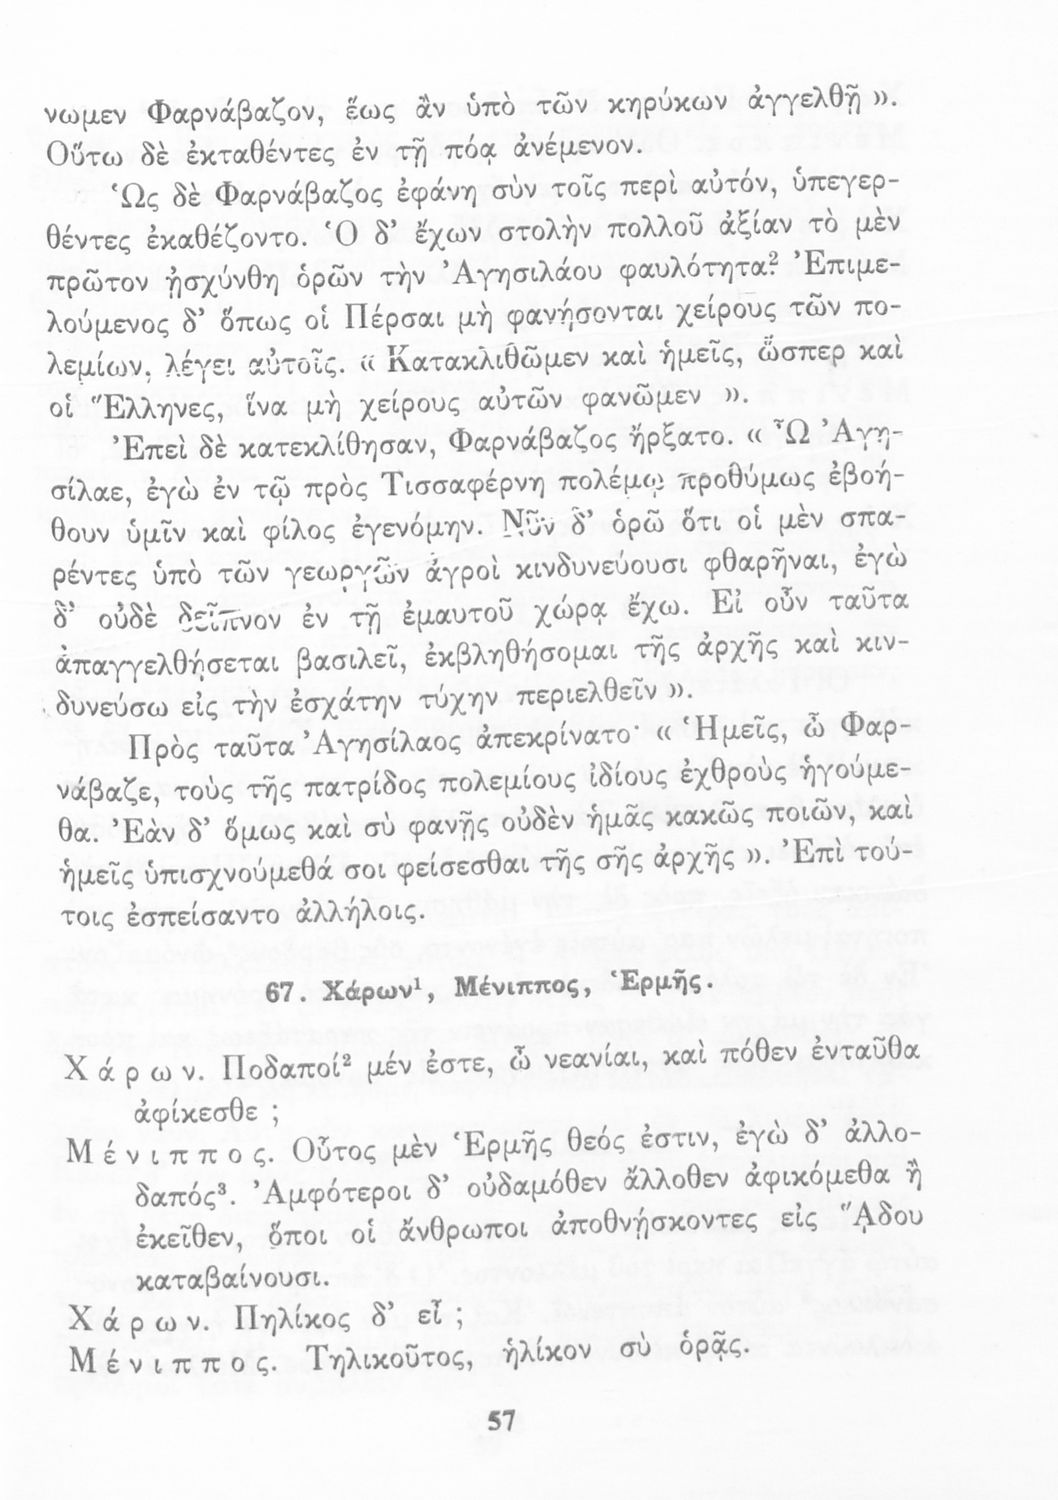 νωμεν Φαρνάβαζον, ἕως ἂν ὑπὸ τῶν κηρύκων ἀγγελθῇ ».
Οὕτω δὲ ἐκταθέντες ἐν τῇ πόᾳ ἀνέμενον.
Ὡς δὲ Φαρνάβαζος ἐφάνη σὺν τοῖς περὶ αὐτόν, ὑπεγερ-
θέντες ἐκαθέζοντο. Ὁ δ’ ἔχων στολὴν πολλοῦ ἀξίαν τὸ μὲν
πρῶτον ᾐσχύνθη ὁρῶν τὴν Ἀγησιλάου φαυλότητα². Ἐπιμε-
λούμενος δ’ ὅπως οἱ Πέρσαι μὴ φανήσονται χείρους τῶν πο-
λεμίων, λέγει αὐτοῖς. « Κατακλιθῶμεν καὶ ἡμεῖς, ὥσπερ καὶ
οἱ Ἕλληνες, ἵνα μὴ χείρους αὐτῶν φανῶμεν ».
Ἐπεὶ δὲ κατεκλίθησαν, Φαρνάβαζος ἤρξατο. « Ὦ Ἀγη-
σίλαε, ἐγὼ ἐν τῷ πρὸς Τισσαφέρνη πολέμῳ προθύμως ἐβοή-
θουν ὑμῖν καὶ φίλος ἐγενόμην. Νῦν δ’ ὁρῶ ὅτι οἱ μὲν σπα-
ρέντες ὑπὸ τῶν γεωργῶν ἀγροὶ κινδυνεύουσι φθαρῆναι, ἐγὼ
δ’ οὐδὲ δεῖπνον ἐν τῇ ἐμαυτοῦ χώρᾳ ἔχω. Εἰ οὖν ταῦτα
ἀπαγγελθήσεται βασιλεῖ, ἐκβληθήσομαι τῆς ἀρχῆς καὶ κιν-
δυνεύσω εἰς τὴν ἐσχάτην τύχην περιελθεῖν ».
Πρὸς ταῦτα Ἀγησίλαος ἀπεκρίνατο· « Ἡμεῖς, ὦ Φαρ-
νάβαζε, τοὺς τῆς πατρίδος πολεμίους ἰδίους ἐχθροὺς ἡγούμε-
θα. Ἐὰν δ’ ὅμως καὶ σὺ φανῇς οὐδὲν ἡμᾶς κακῶς ποιῶν, καὶ
ἡμεῖς ὑπισχνούμεθά σοι φείσεσθαι τῆς σῆς ἀρχῆς ». Ἐπὶ τού-
τοις ἐσπείσαντο ἀλλήλοις.
67. Χάρων¹, Μένιππος, Ἑρμῆς.
Χάρων. Ποδαποί² μέν ἐστε, ὦ νεανίαι, καὶ πόθεν ἐνταῦθα
ἀφίκεσθε ;
Μένιππος. Οὗτος μὲν Ἑρμῆς θεός ἐστιν, ἐγὼ δ’ ἀλλο-
δαπός³. Ἀμφότεροι δ’ οὐδαμόθεν ἄλλοθεν ἀφικόμεθα ἢ
ἐκεῖθεν, ὅποι οἱ ἄνθρωποι ἀποθνῄσκοντες εἰς Ἅδου
καταβαίνουσι.
Χάρων. Πηλίκος δ’ εἶ ;
Μένιππος. Τηλικοῦτος, ἡλίκον σὺ ὁρᾷς.
57